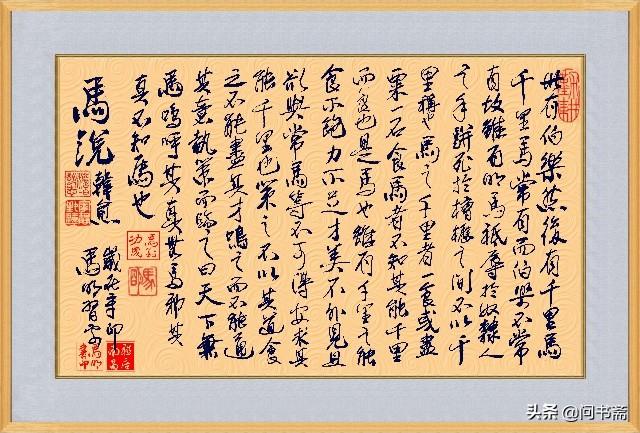 世有伯樂然後有千里馬
千里馬常有而伯樂不常
有故雖有名馬祇辱於奴隸人
之手駢死於槽櫪之間不以千
里稱也馬之千里者一食或盡
粟一石食馬者不知其能千里
而食也是馬也雖有千里之能
食不飽力不足才美不外見且
欲與常馬等不可得安求其
能千里也策之不以其道食
之不能盡其才鳴之而不能通
其意執策而臨之曰天下無
馬嗚呼其真無馬邪其
真不知馬也
馬說
韓愈
歲在辛卯
馬明習書
头条 @问书斋